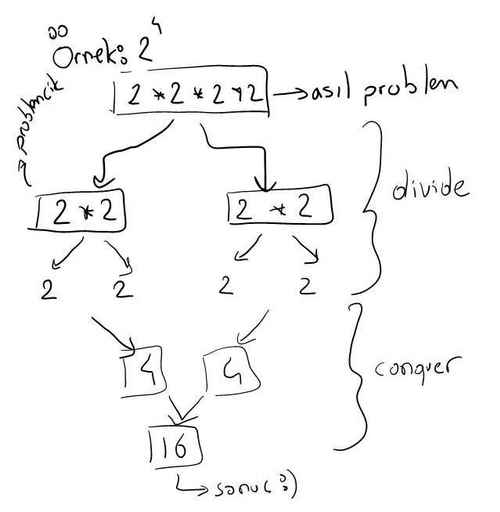 Örnek: 2⁴
2 * 2 * 2 * 2 → asıl problem
problemcik
2 * 2
2 * 2
divide
2
2
2
2
4
4
conquer
16
sonuç :)